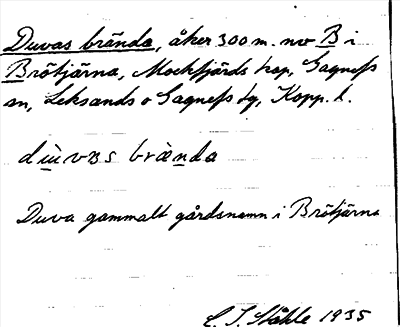 Duvas brända, åker 300 m. nv B i
Brötjärna, Mockfjärds kap, Gagnefs
sn, Leksands o Gagnefs tg, Kopp. l.
dùvɐs bræ̀nda
Duva gammalt gårdsnamn i Brötjärna
C. I. Ståhle 1935